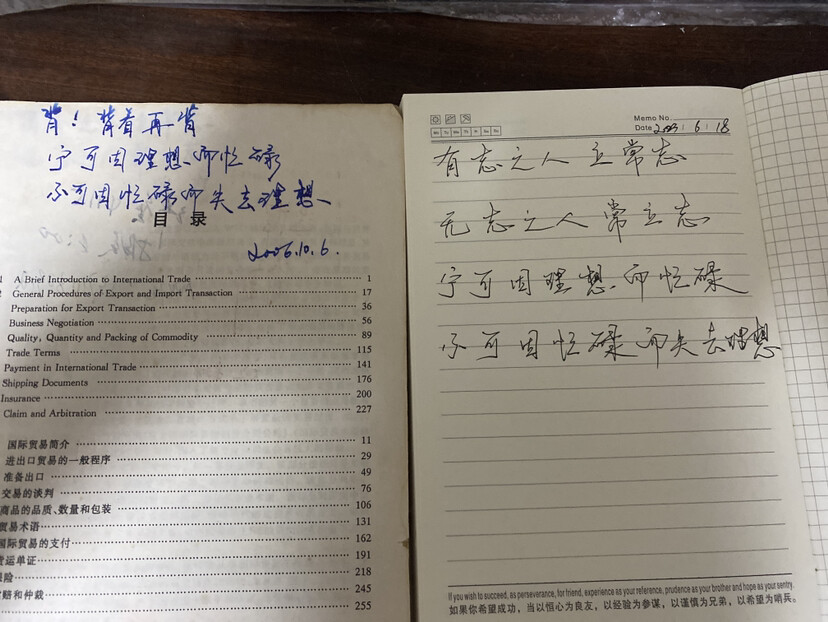 背！背着再背
宁可因理想而忙碌
不可因忙碌而失去理想
目 录
2006.10.6.
A Brief Introduction to International Trade 1
General Procedures of Export and Import Transaction 17
Preparation for Export Transaction 36
Business Negotiation 56
Quality, Quantity and Packing of Commodity 89
Trade Terms 115
Payment in International Trade 141
Shipping Documents 176
Insurance 200
Claim and Arbitration 227
国际贸易简介 11
进出口贸易的一般程序 29
准备出口 49
交易的谈判 76
商品的品质、数量和包装 106
贸易术语 131
国际贸易的支付 162
货运单证 191
险 218
赔和仲裁 245
255
Memo No.
Mo Tu We Th Fr Sa Su
Date 2023 : 6 : 18
有志之人立常志
无志之人常立志
宁可因理想而忙碌
不可因忙碌而失去理想
If you wish to succeed, as perseverance, for friend, experience as your reference, prudence as your brother and hope as your sentry.
如果你希望成功，当以恒心为良友，以经验为参谋，以谨慎为兄弟，以希望为哨兵。